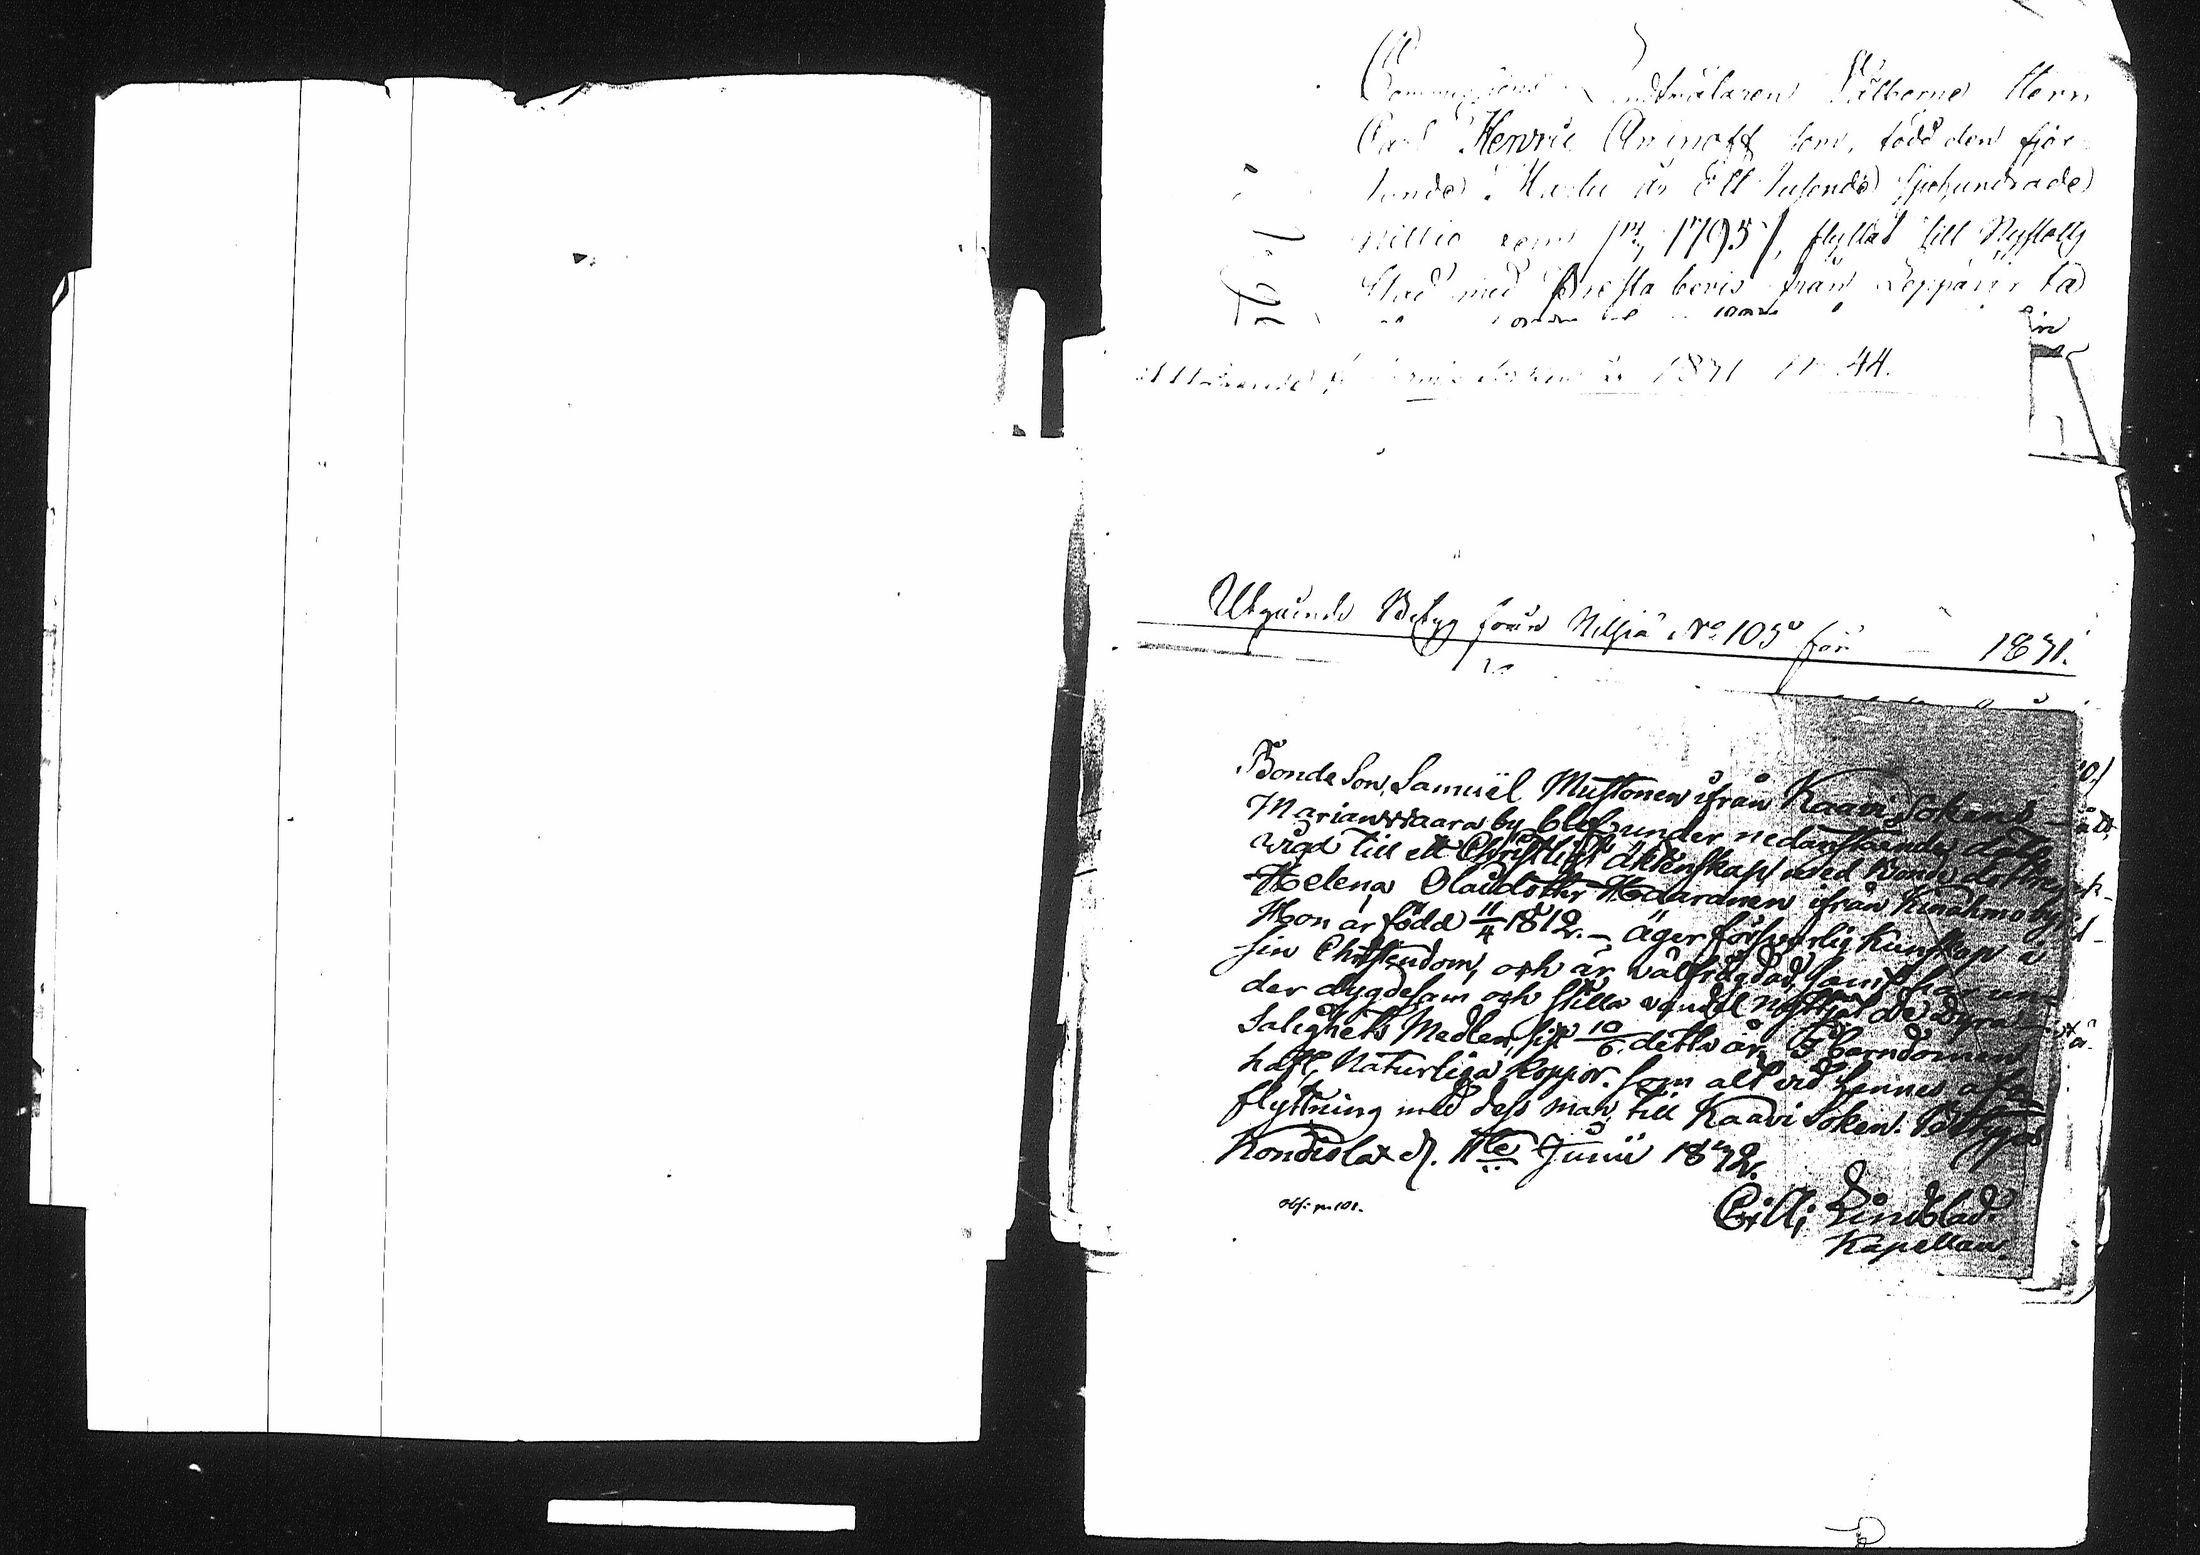 Commissions Landtmätaren Välborne Herr
Carl Henric Aminoff som, född den fjor-
tonde Martii år Ett tusende sjuhundrade
nittio fem 1795/, flyttat till Nyslotts
Stad med prestabevis från Leppävirta
år 1831 N 44.
Utgående Betyg från Nilsiä No 105 för 1831.
Bonde Son, Samuel Mustonen ifrån Kaavi Sokens
Marianwaara by, blef under nedanstående dato
wigd till ett Christligt äktenskap med Bonde dottren
Helena Olaidotter Haaranen ifrån Kinahmo by.
Hon är född 11/4 1812. – äger försvarlig kunskap i
sin Christendom, och är välfrägdad, samt har un-
der dygdesam och stilla vandel nyttjat de dyra
Salighets Medlen, sist 10/6 detta år. I barndomen
haft Naturliga koppor. Som alt vid hennes af-
flyttning med dess man, till Kaavi Soken. Betygas
Kondiolax d. 11te Junii 1832.
Lindblad.
Kapellan.